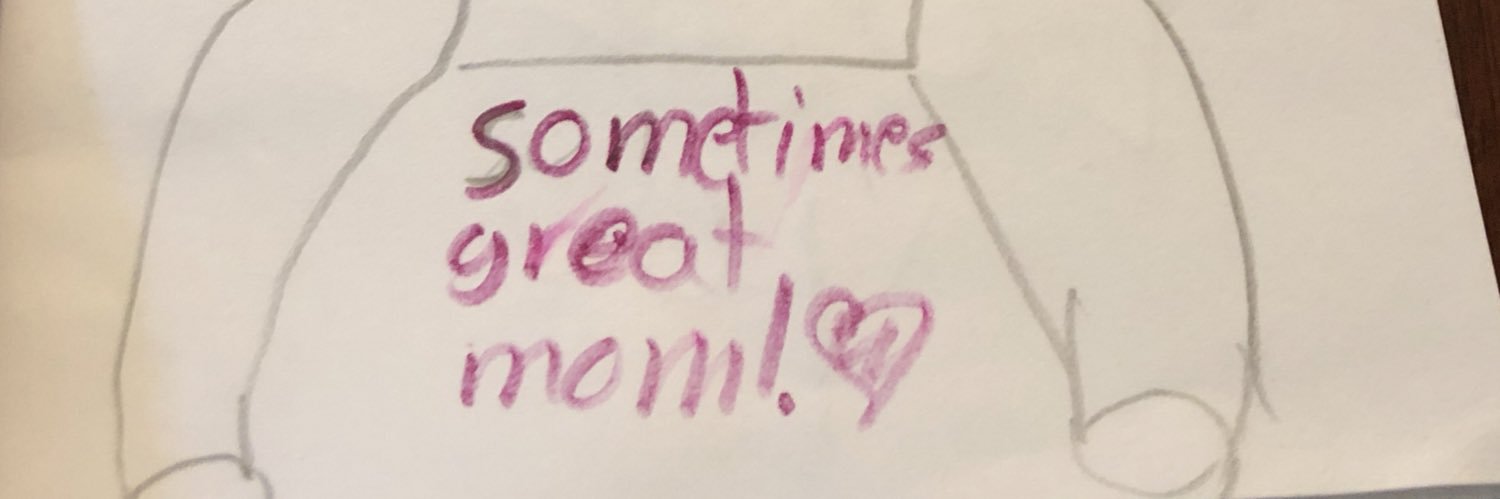 sometimes
great
mom!